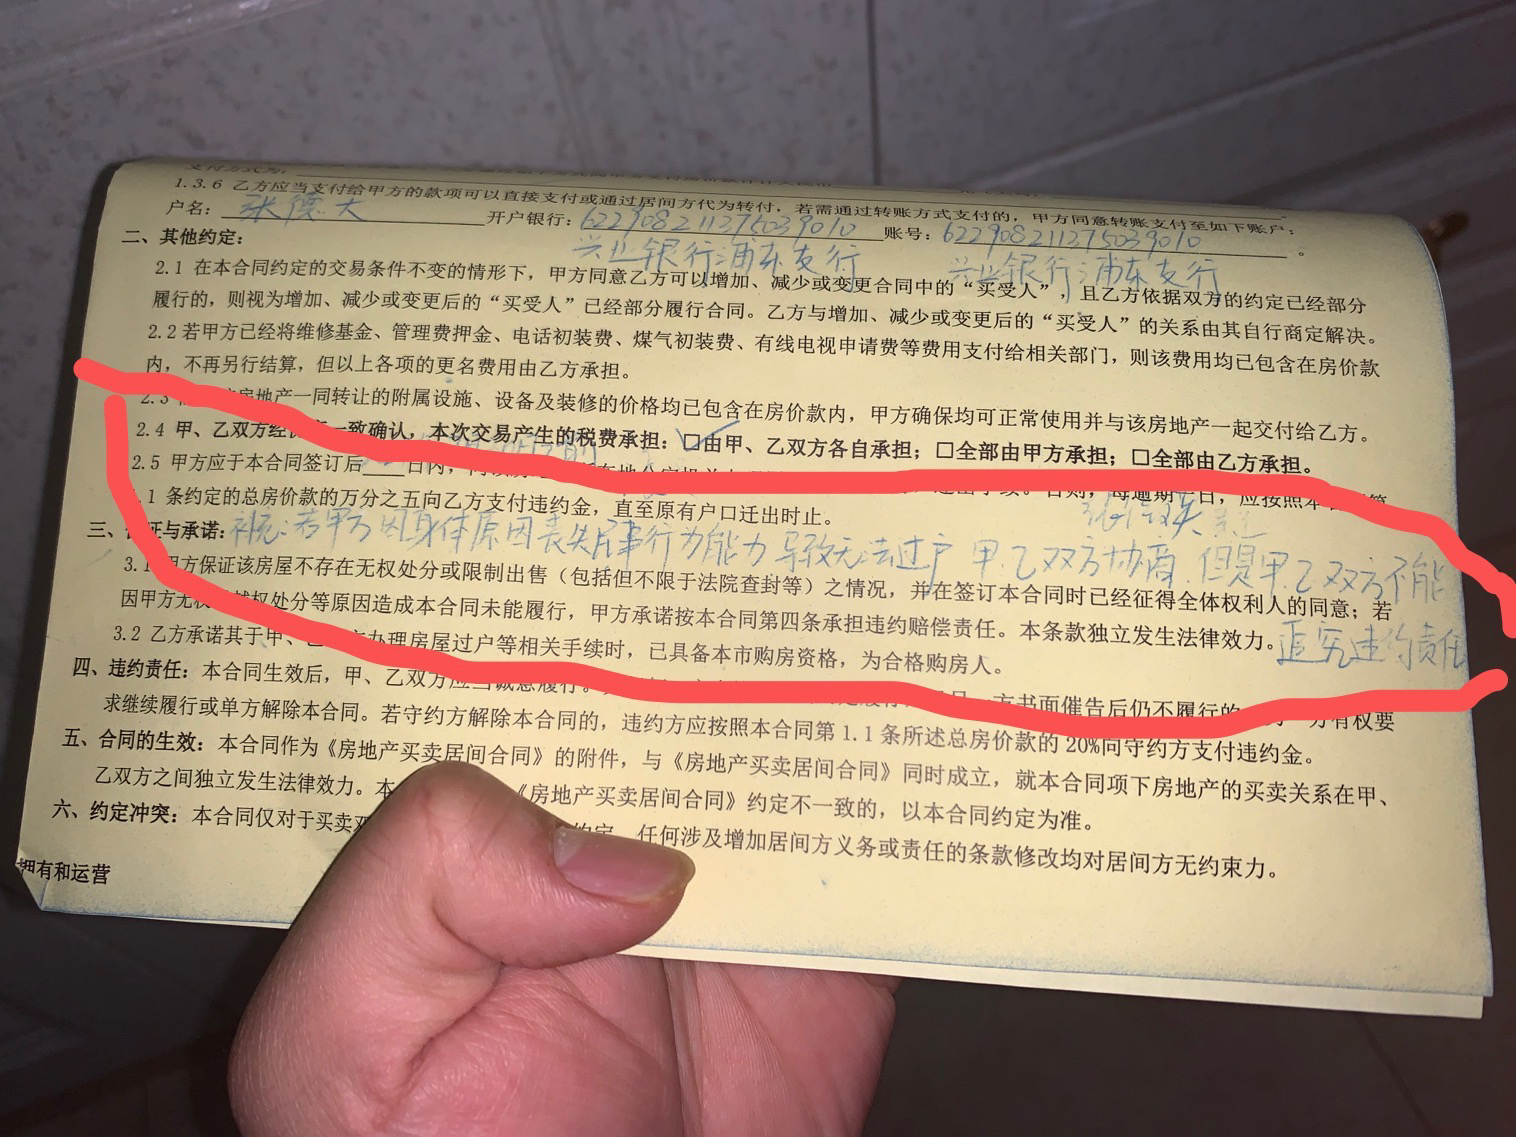 1.3.6 乙方应当支付给甲方的款项可以直接支付或通过居间方代为转付，若需通过转账方式支付的，甲方同意转账支付至如下账户：
户名： 开户银行：622908211375039010 账号：622908211375039010 。
兴业银行浦东支行 兴业银行浦东支行
二、其他约定：
2.1 在本合同约定的交易条件不变的情形下，甲方同意乙方可以增加、减少或变更合同中的“买受人”，且乙方依据双方的约定已经部分
履行的，则视为增加、减少或变更后的“买受人”已经部分履行合同。乙方与增加、减少或变更后的“买受人”的关系由其自行商定解决。
2.2 若甲方已经将维修基金、管理费押金、电话初装费、煤气初装费、有线电视申请费等费用支付给相关部门，则该费用均已包含在房价款
内，不再另行结算，但以上各项的更名费用由乙方承担。
2.3 房地产一同转让的附属设施、设备及装修的价格均已包含在房价款内，甲方确保均可正常使用并与该房地产一起交付给乙方。
2.4 甲、乙双方经 一致确认，本次交易产生的税费承担：☑由甲、乙双方各自承担；□全部由甲方承担；□全部由乙方承担。
2.5 甲方应于本合同签订后 日内， 否则，每逾期 日，应按照本
1 条约定的总房价款的万分之五向乙方支付违约金，直至原有户口迁出时止。
三、 证与承诺：补充：若甲方因身体原因丧失民事行为能力导致无法过户 甲、乙双方协商，但是甲、乙双方不能
追究违约责任
3.1 甲方保证该房屋不存在无权处分或限制出售（包括但不限于法院查封等）之情况，并在签订本合同时已经征得全体权利人的同意；若
因甲方无权 越权处分等原因造成本合同未能履行，甲方承诺按本合同第四条承担违约赔偿责任。本条款独立发生法律效力。
3.2 乙方承诺其于甲、乙 办理房屋过户等相关手续时，已具备本市购房资格，为合格购房人。
四、违约责任：本合同生效后，甲、乙双方应当诚意履行。 方书面催告后仍不履行的 方有权要
求继续履行或单方解除本合同。若守约方解除本合同的，违约方应按照本合同第 1.1 条所述总房价款的 20%向守约方支付违约金。
五、合同的生效：本合同作为《房地产买卖居间合同》的附件，与《房地产买卖居间合同》同时成立，就本合同项下房地产的买卖关系在甲、
乙双方之间独立发生法律效力。本 《房地产买卖居间合同》约定不一致的，以本合同约定为准。
六、约定冲突：本合同仅对于买卖双 约定，任何涉及增加居间方义务或责任的条款修改均对居间方无约束力。
拥有和运营